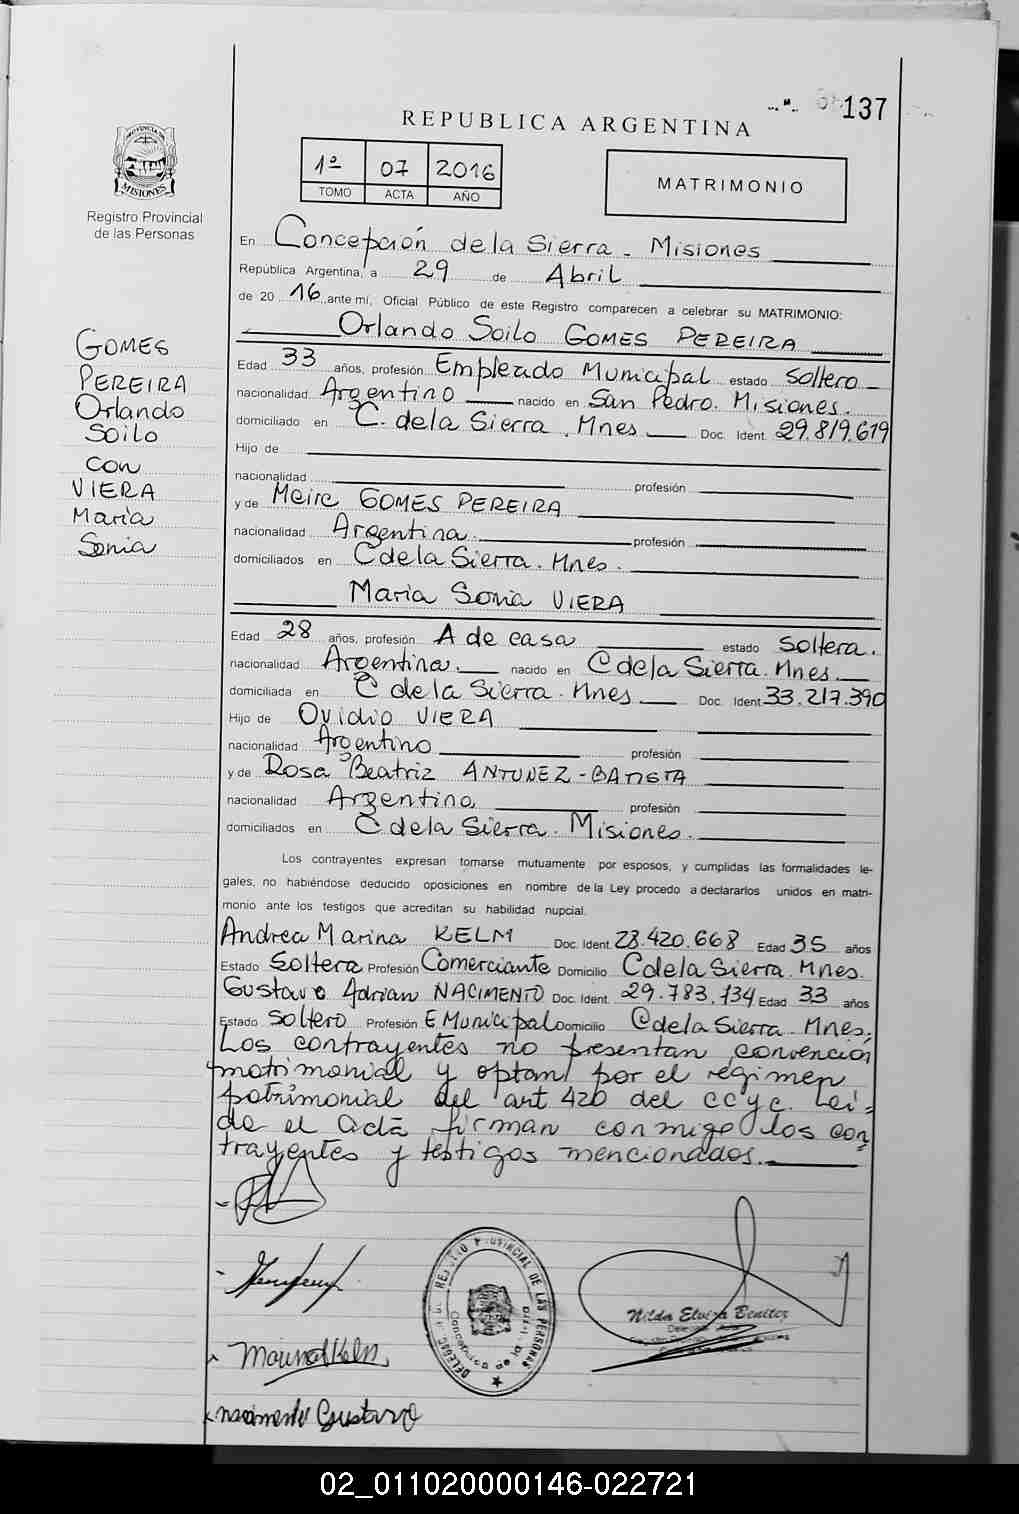 137
REPUBLICA ARGENTINA
1º 07 2016
TOMO ACTA AÑO
MATRIMONIO
MISIONES
Registro Provincial
de las Personas
En Concepción de la Sierra - Misiones
República Argentina, a 29 de Abril
de 20 16 ante mí, Oficial Público de este Registro comparecen a celebrar su MATRIMONIO:
Orlando Soilo GOMES PEREIRA
GOMES
PEREIRA
Orlando
Soilo
con
VIERA
Maria
Sonia
Edad 33 años, profesión Empleado Municipal estado Soltero
nacionalidad Argentino nacido en San Pedro. Misiones.
domiciliado en C. de la Sierra. Mnes Doc. Ident. 29.819.619
Hijo de
nacionalidad profesión
y de Meire GOMES PEREIRA
nacionalidad Argentina. profesión
domiciliados en C de la Sierra. Mnes.
Maria Sonia VIERA
Edad 28 años, profesión A de casa estado Soltera.
nacionalidad Argentina. nacido en C de la Sierra. Mnes.
domiciliada en C de la Sierra. Mnes Doc. Ident. 33.217.390
Hijo de Ovidio VIERA
nacionalidad Argentino profesión
y de Rosa Beatriz ANTUNEZ-BATISTA
nacionalidad Argentina profesión
domiciliados en C de la Sierra. Misiones.
Los contrayentes expresan tomarse mutuamente por esposos, y cumplidas las formalidades le-
gales, no habiéndose deducido oposiciones en nombre de la Ley procedo a declararlos unidos en matri-
monio ante los testigos que acreditan su habilidad nupcial.
Andrea Marina KELM Doc. Ident. 28.420.668 Edad 35 años
Estado Soltera Profesión Comerciante Domicilio C de la Sierra. Mnes.
Gustavo Adrian NACIMENTO Doc. Ident. 29.783.134 Edad 33 años
Estado Soltero Profesión E Municipal Domicilio C de la Sierra. Mnes.
Los contrayentes no presentan convención
matrimonial y optan por el régimen
patrimonial del art 420 del CCyC. Leí=
da el acta firman conmigo los con
trayentes y testigos mencionados.
REGISTRO PROVINCIAL DE LAS PERSONAS
Concepcion de la
Nilda Elvira Benitez
Marina Kelm
nacimento Gustavo
02_011020000146-022721